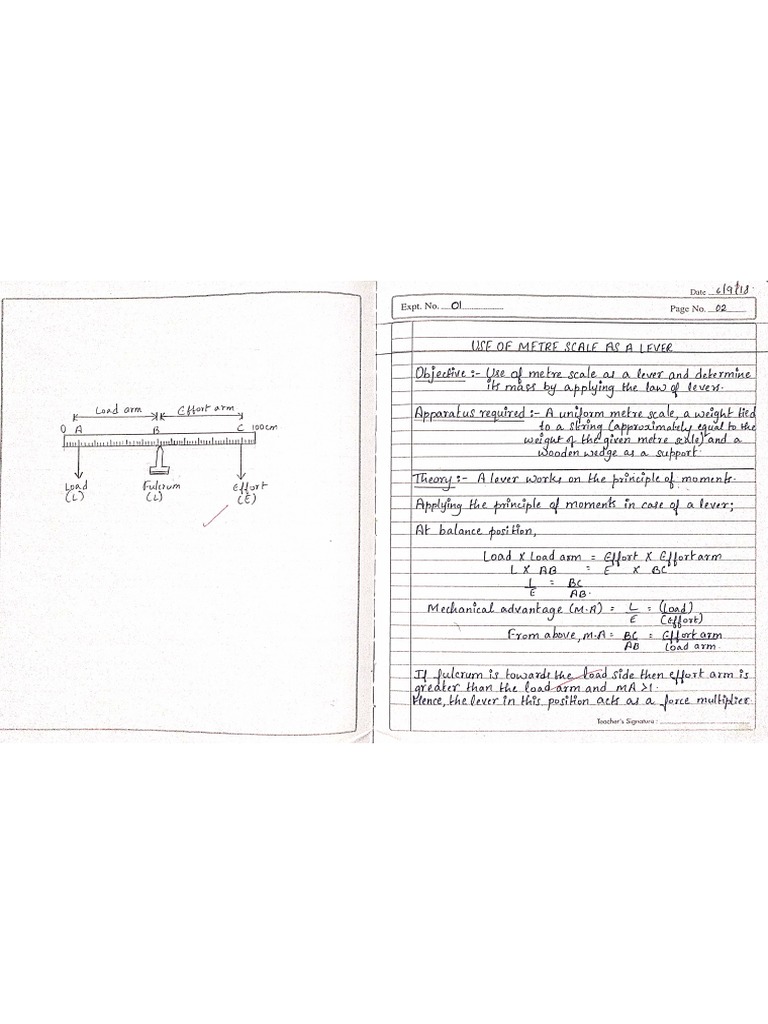 Load arm Effort arm
0 A B C 100cm
Load Fulcrum Effort
(L) (L) (E)
Date 6/9/18.
Expt. No. 01
Page No. 02
USE OF METRE SCALE AS A LEVER
Objective :- Use of metre scale as a lever and determine
its mass by applying the law of levers.
Apparatus required :- A uniform metre scale, a weight tied
to a string (approximately equal to the
weight of the given metre scale) and a
wooden wedge as a support.
Theory :- A lever works on the principle of moments.
Applying the principle of moments in case of a lever;
At balance position,
Load X Load arm = Effort X Effort arm
L X AB = E X BC
L/E = BC/AB.
Mechanical advantage (M.A) = L/E = (Load)/(Effort)
From above, M.A = BC/AB = Effort arm/Load arm.
If fulcrum is towards the load side then effort arm is
greater than the load arm and MA >1.
Hence, the lever in this position acts as a force multiplier.
Teacher's Signature :